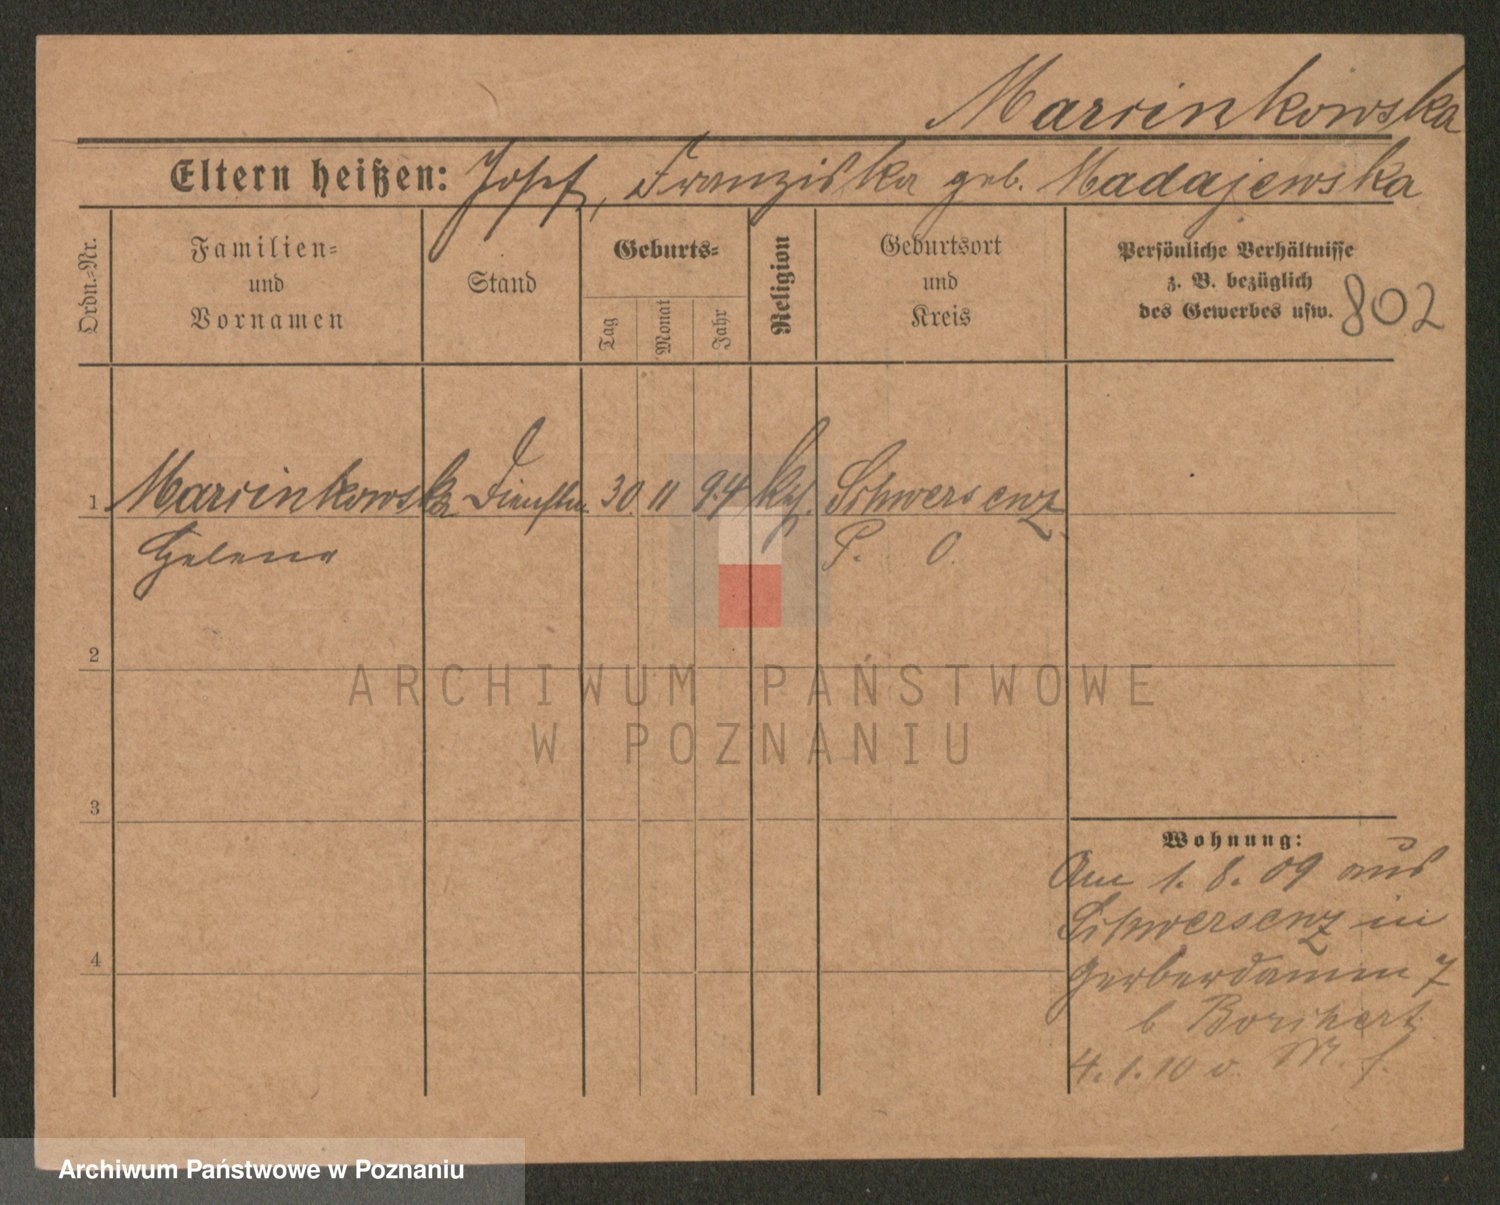 Marcinkowska
Eltern heißen: Josef, Franziska geb. Madajewska
Ordn.-Nr.
Familien-
und
Vornamen
Stand
Geburts-
Tag
Monat
Jahr
Religion
Geburtsort
und
Kreis
Persönliche Verhältnisse
z. B. bezüglich
des Gewerbes usw. 802
1 Marcinkowska 30. 11 94 kth. Schwersenz
Helena P. O.
2
3
4
Wohnung:
Am 1. 8. 09 aus
Schwersenz in
Gerberdamm 7
b Borchert
4. 1. 10 v.
ARCHIWUM PAŃSTWOWE
W POZNANIU
Archiwum Państwowe w Poznaniu